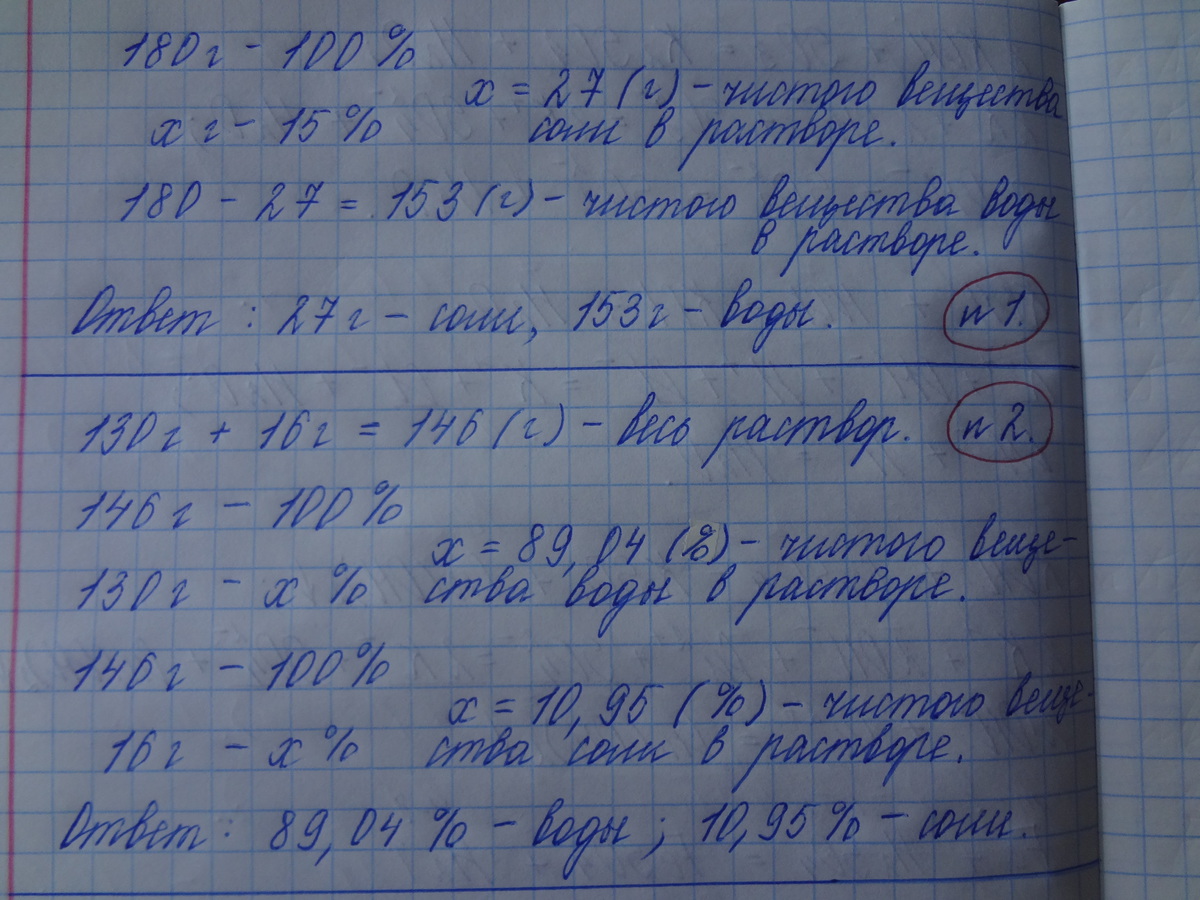 180 г - 100 %
x = 27 (г) - чистого вещества
x г - 15 %
соли в растворе.
180 - 27 = 153 (г) - чистого вещества воды
в растворе.
Ответ : 27 г - соли, 153 г - воды. n 1.
130 г + 16 г = 146 (г) - весь раствор. n 2.
146 г - 100 %
x = 89, 04 (%) - чистого веще-
130 г - x % ства воды в растворе.
146 г - 100 %
x = 10, 95 (%) - чистого веще-
16 г - x % ства соли в растворе.
Ответ : 89, 04 % - воды ; 10, 95 % - соли.